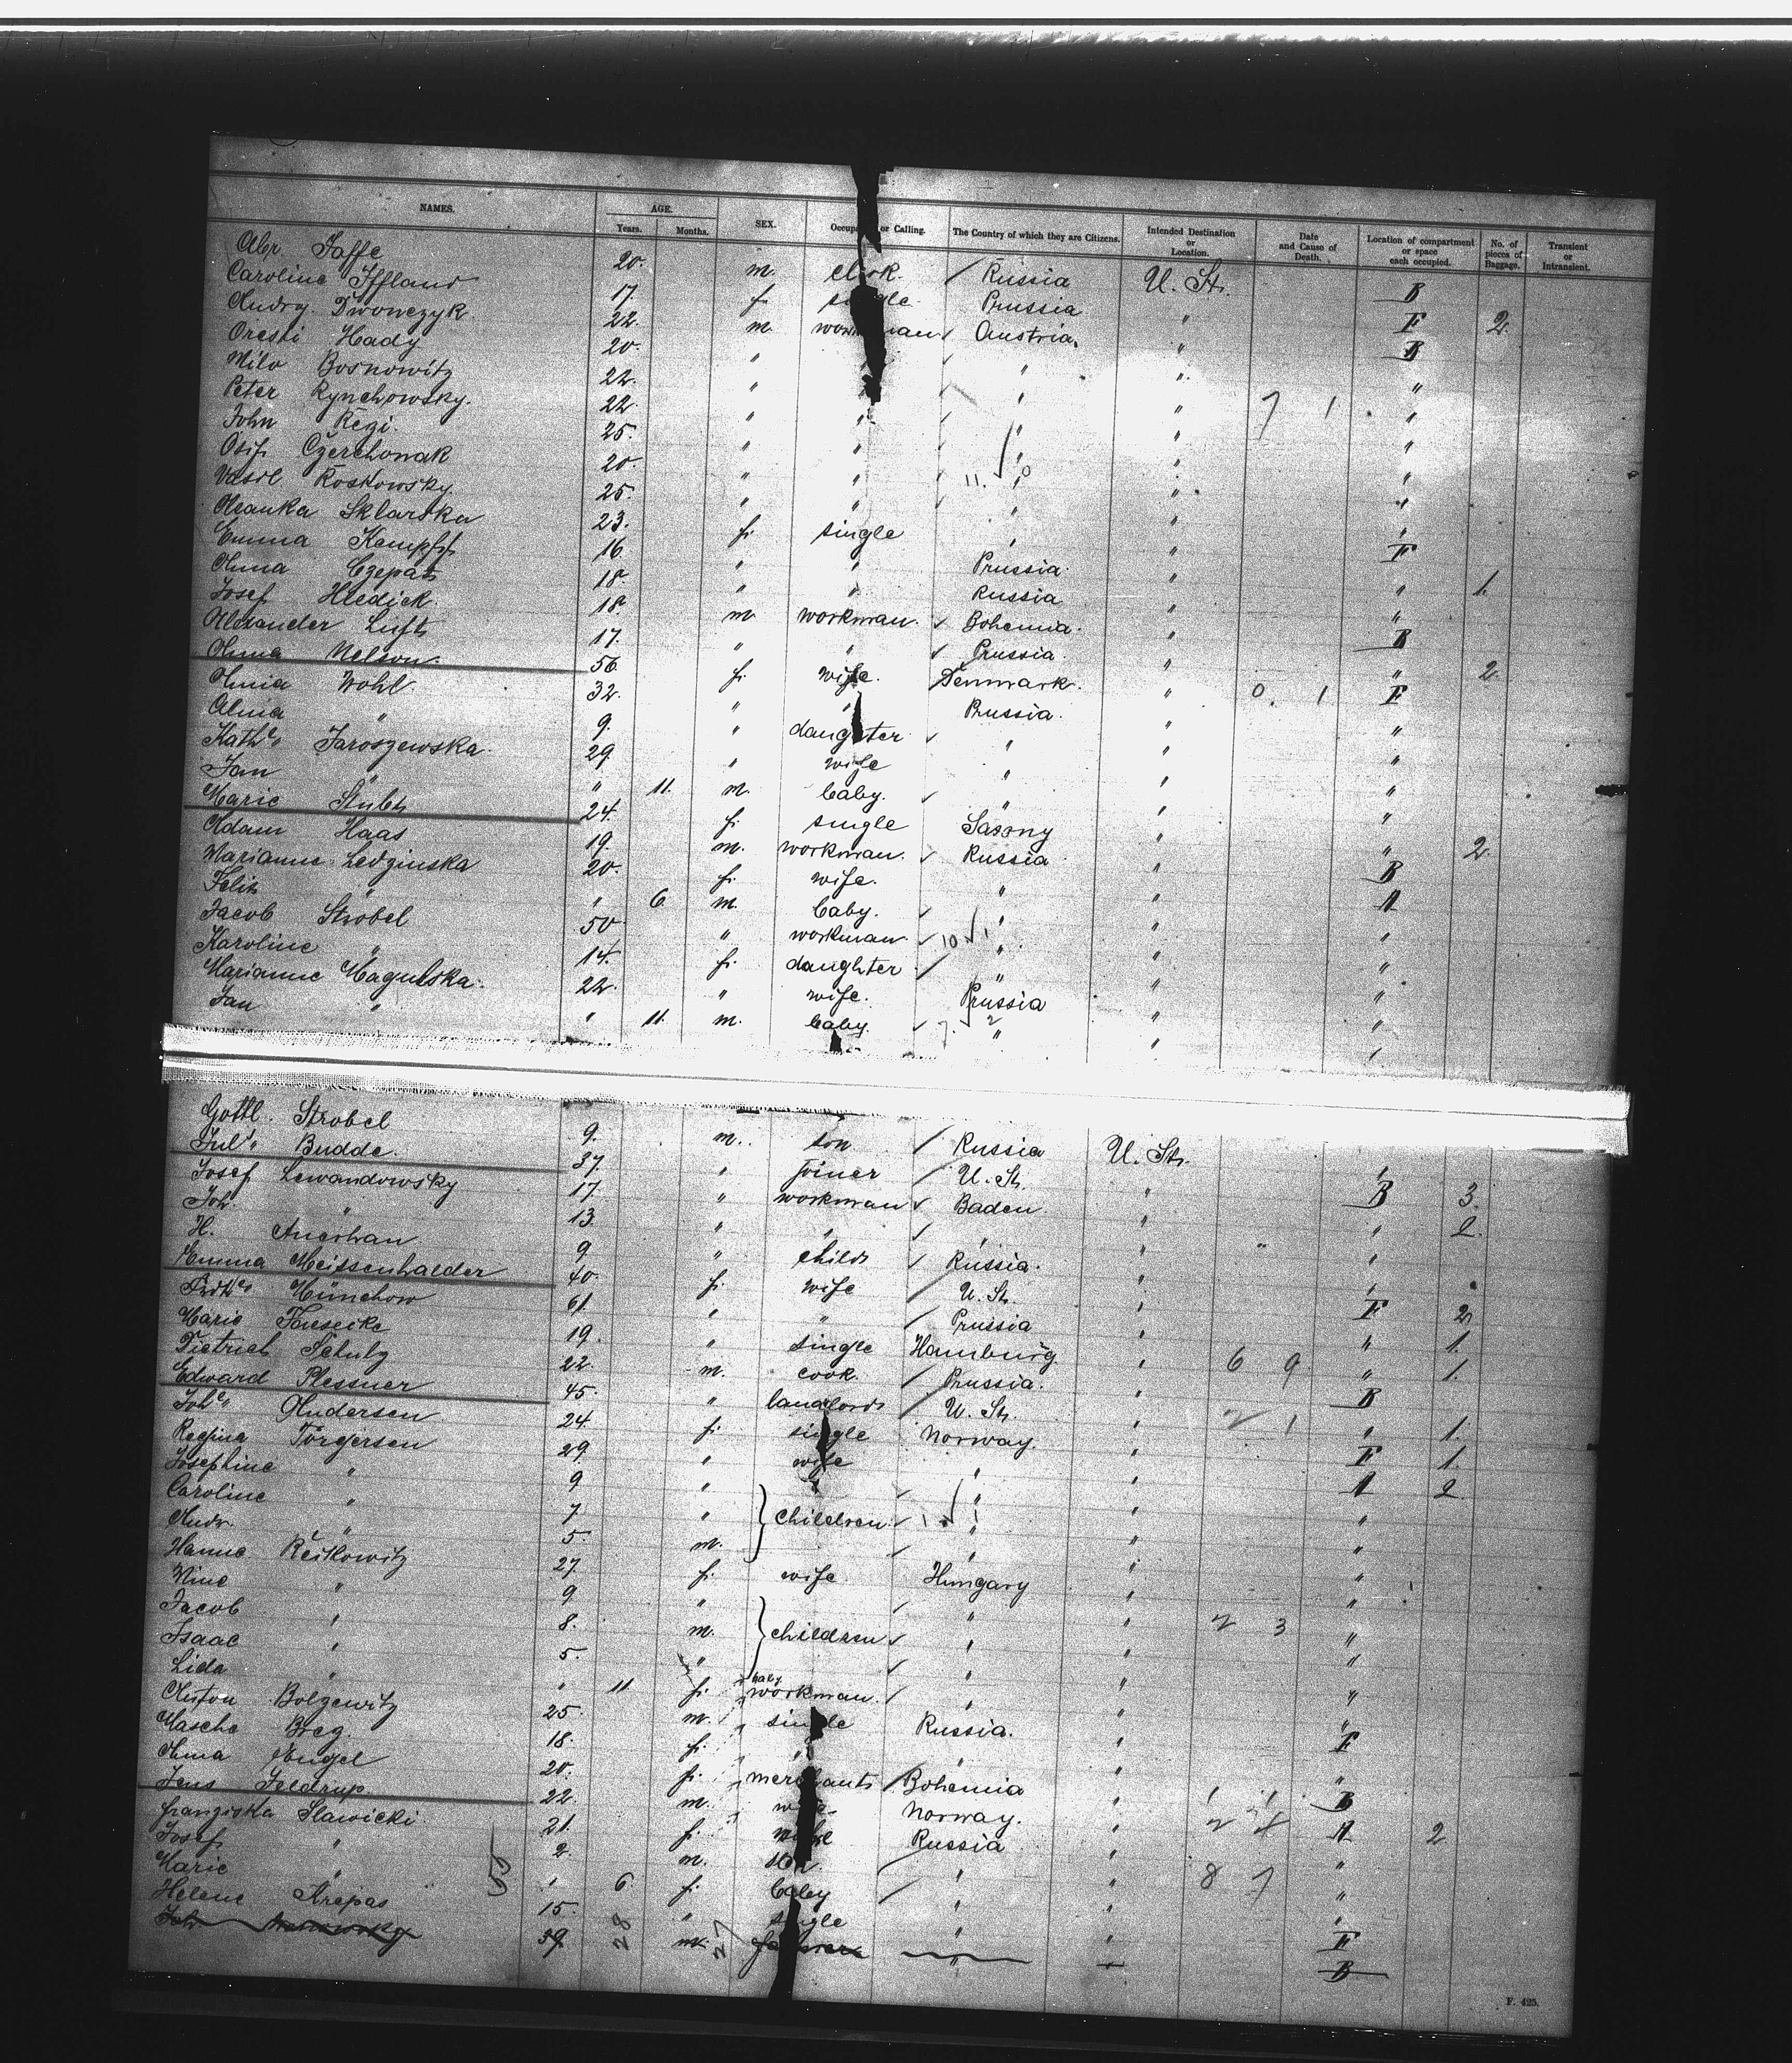 NAMES. AGE. SEX. Occupation or Calling. The Country of which they are Citizens. Intended Destination or Location. Date and Cause of Death. Location of compartment or space each occupied. No. of pieces of Baggage. Transient or Intransient.
Years. Months.
Abr Jaffe 20. m. clerk. Russia U. St. B
Caroline Iffland 17. f. single Prussia " F 2.
Andry. Dwonczyk 22. m. workman Austria. " B
Oreski Hady 20. " " " " "
Milo Bosnowitz 22. " " " " "
Peter Rynchowsky. 22. " " " " 7 1 "
John Regi. 25. " " " " "
Osip Czerchowak 20. " " " " "
Vasil Roskowsky. 25. " " " " "
Sklarska 23. f. single " " F
Emma Kempf 16. " " Prussia. " "
Anna Czepat 18. " " Russia " " 1.
Josef Hledick. 18. m. workman. Bohemia. " B
Alexander Luft 17. " " Prussia. " "
Anna Nelson. 56. f. wife. Denmark. " F 2.
Wohl. 32. " " Russia. " 0. 1 "
Alma " 9. " daughter. " " "
Kath. Jaroszewska. 29. " wife " " "
Jan " " 11. m. baby. " " "
Marie 24. f. single Saxony " " 2.
Adam Haas 19. m. workman. Russia " B
Marianne Ledzinska 20. f. wife. " " A
Felix " " 6. m. baby. " " "
Jacob Strobel 50. " workman. " " "
Karoline " 14. f. daughter. " " "
Marianne Magulska. 22. " wife. Prussia " "
Jan " " 11. m. baby. " " "
Gottl. Strobel 9. m. son Russia U. St.
Jul. Budde. 37. " joiner U. St. " B 3.
Josef Lewandowsky 17. " workman Baden. " " 2.
Joh. " 13. " " " " "
H. 9. " child Russia. " "
Emma Meissenhalder 40. f. wife U. St. " F 2.
Münchow 61. " " Prussia " " 1.
Marie 19. " single Hamburg " 6 9 " 1.
Dietrich Schulz 22. m. cook. Prussia. " B
Edward Plessner 45. " landlord U. St. " 2 1 " 1.
Joh. Andersen 24. f. single Norway. " F 1.
Regina Törgersen 29. " wife " " A 2.
Josephine " 9 " " " "
Caroline " 7. " children. " " "
Andr. " 5. m. " " "
Hanne Reikowitz 27. f. wife Hungary " "
Mine " 9 " " " "
Jacob " 8. m. children " " 2 3 "
Isaac " 5. " " " "
Lida " " 11 f. baby " " "
Anton Bolzewitz 25. m. workman. Russia. " "
Masche Breg. 18. f. single " " F
Anna Engel 20. f. " Bohemia " "
Jens Feldrup. 22. m. merchant Norway. " B
Franziska Slawicki. 21. f. wife Russia " A 2
Josef " 2. m. son. " " "
Marie " " 6. f. baby " " 8 7 "
Helene Arepas 15. " single " " F
39. m. " B
55 28 27
F. 425.